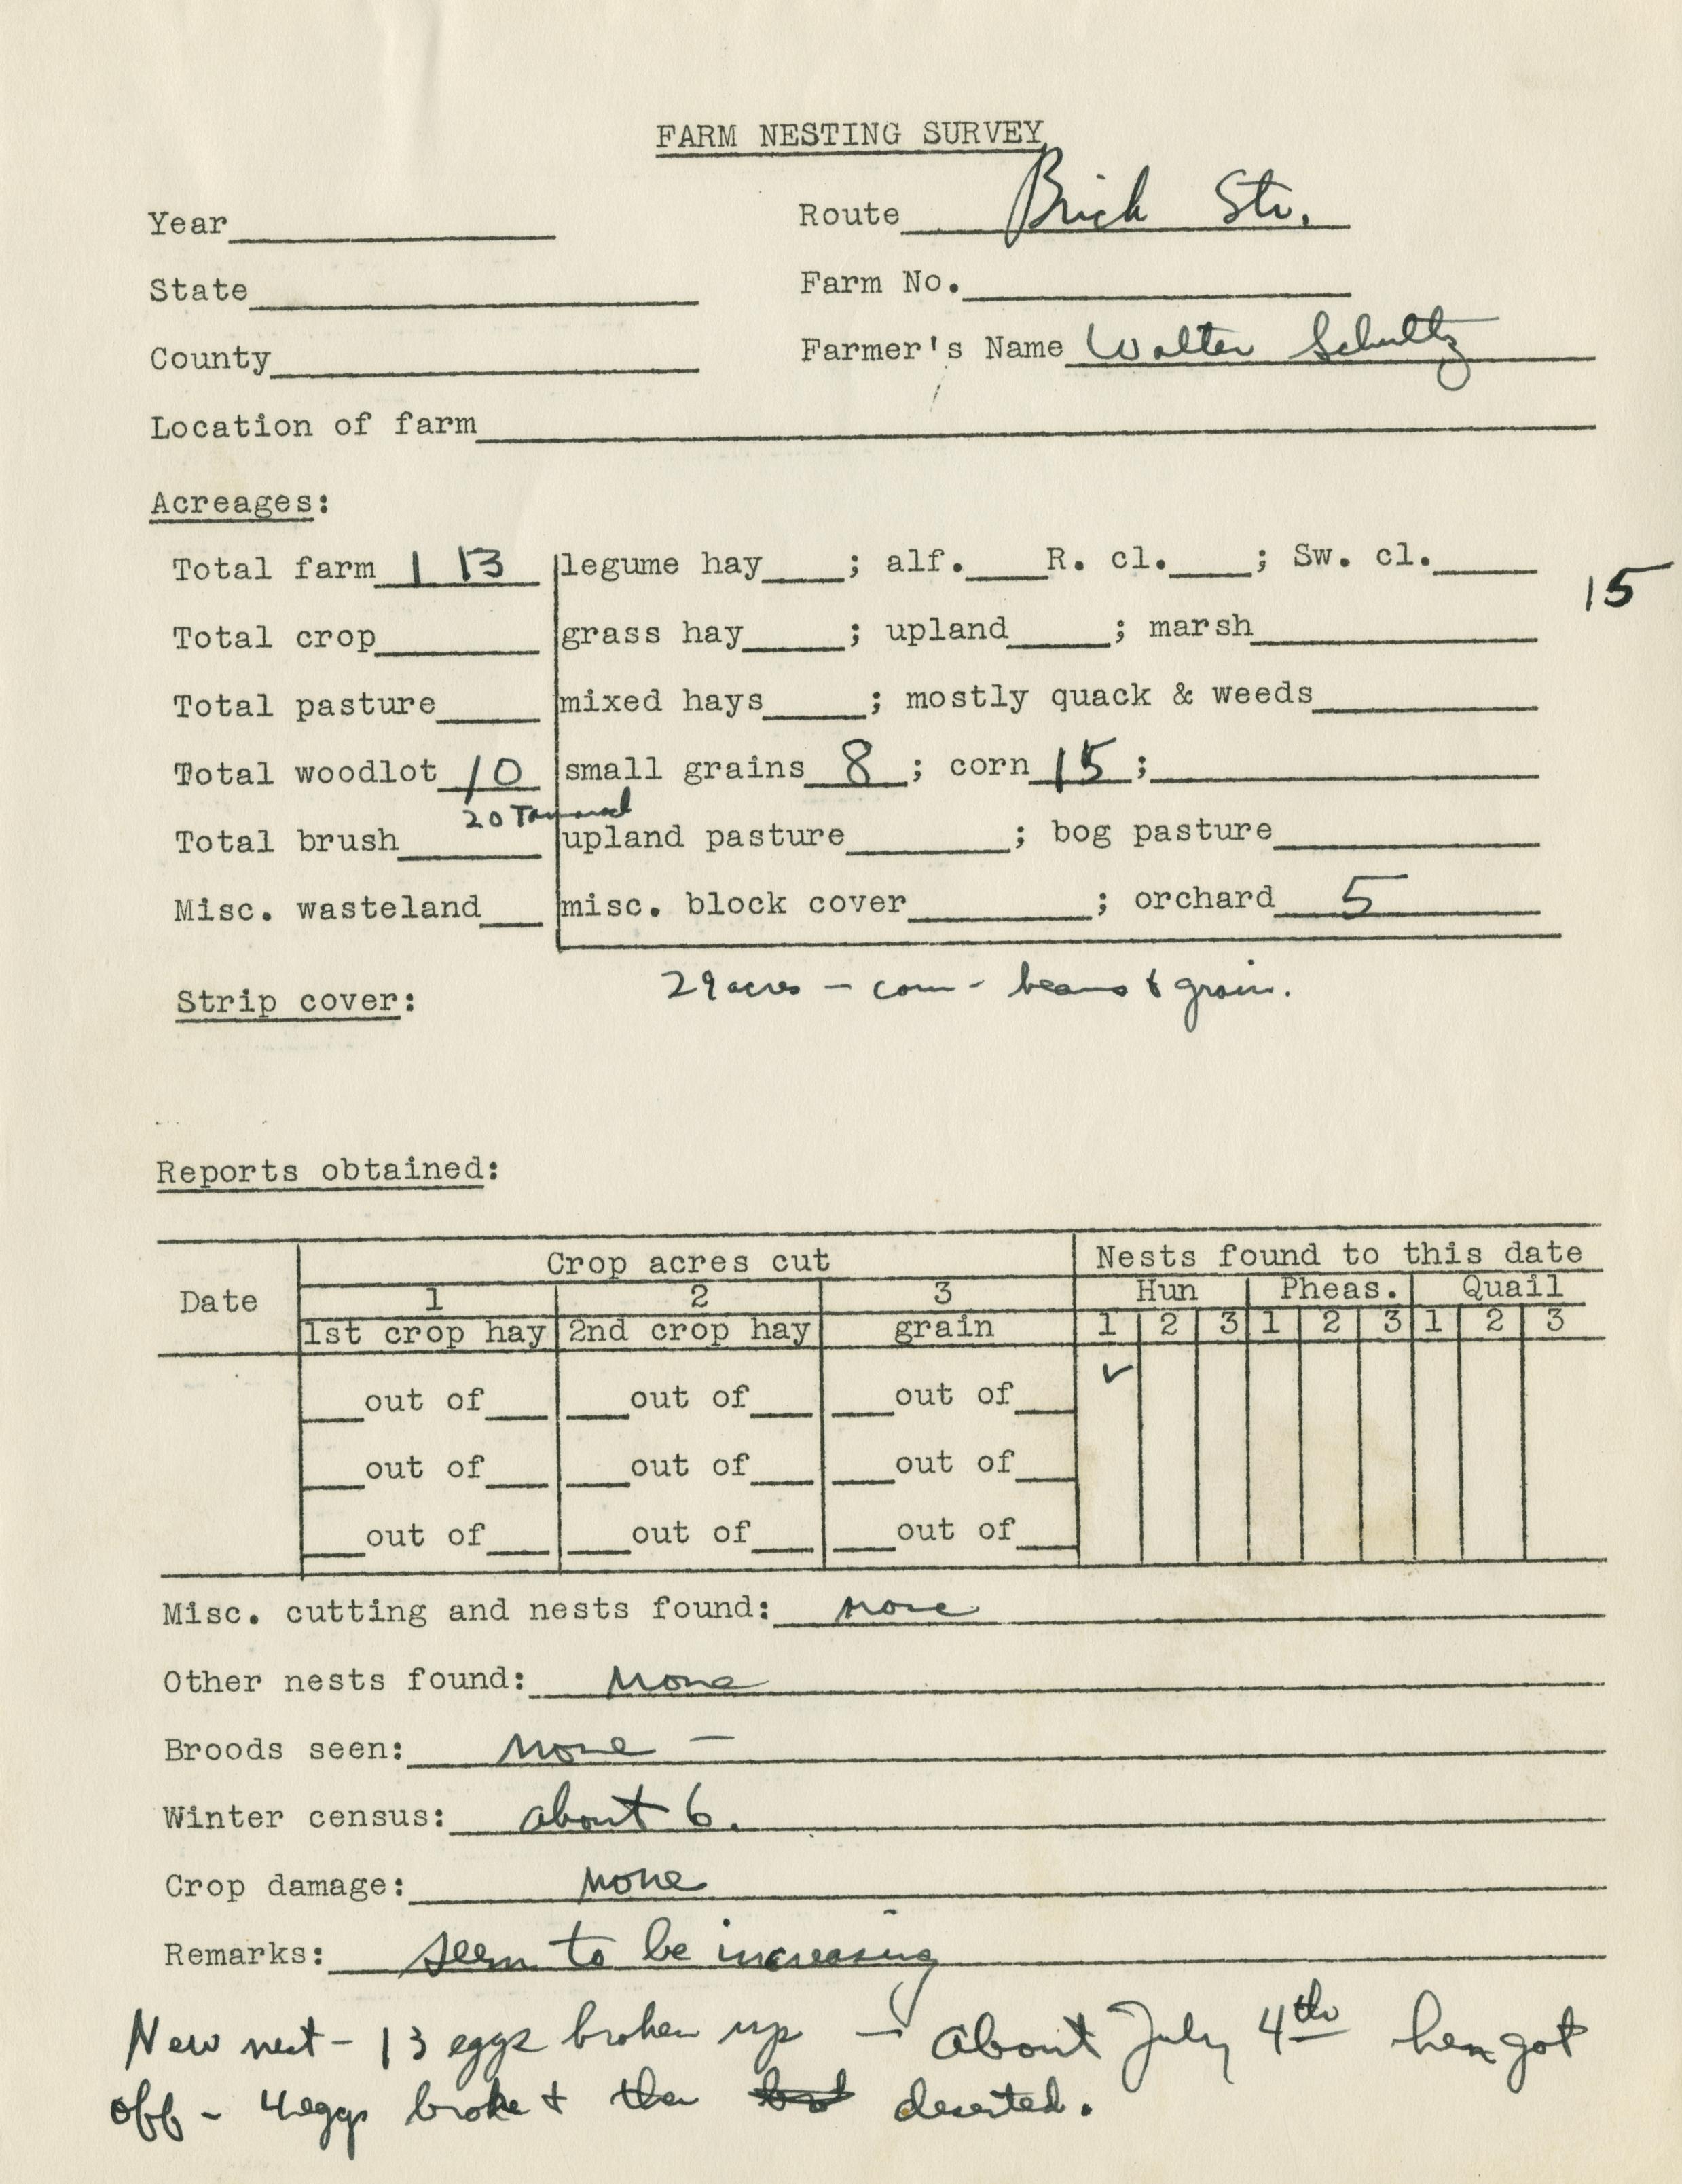 FARM NESTING SURVEY
Year
Route Brick Str.
State
Farm No.
County
Farmer's Name Walter Schultz
Location of farm
Acreages:
Total farm 113 legume hay ; alf. R. cl. ; Sw. cl.
15
Total crop grass hay ; upland ; marsh
Total pasture mixed hays ; mostly quack & weeds
Total woodlot 10 small grains 8 ; corn 15 ;
20 Tamarack
Total brush upland pasture ; bog pasture
Misc. wasteland misc. block cover ; orchard 5
Strip cover: 29 acres - corn - beans & grain.
Reports obtained:
Date Crop acres cut Nests found to this date
1 2 3 Hun Pheas. Quail
1st crop hay 2nd crop hay grain 1 2 3 1 2 3 1 2 3
✓
out of out of out of
out of out of out of
out of out of out of
Misc. cutting and nests found: none
Other nests found: None
Broods seen: None -
Winter census: about 6.
Crop damage: none
Remarks: seem to be increasing
New nest - 13 eggs broken up - about July 4th hen got
off - 4 eggs broke & then deserted.